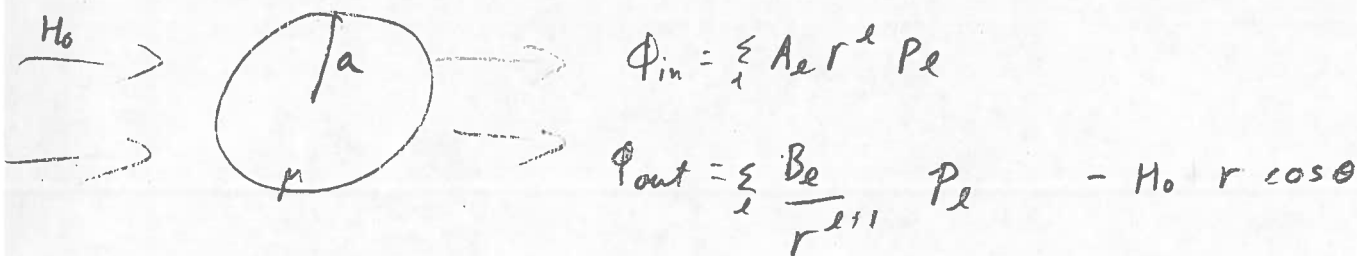 H₀
a
μ
Φ_in = Σ_ℓ A_ℓ r^ℓ P_ℓ
Φ_out = Σ_ℓ B_ℓ / r^(ℓ+1) P_ℓ - H₀ r cosθ